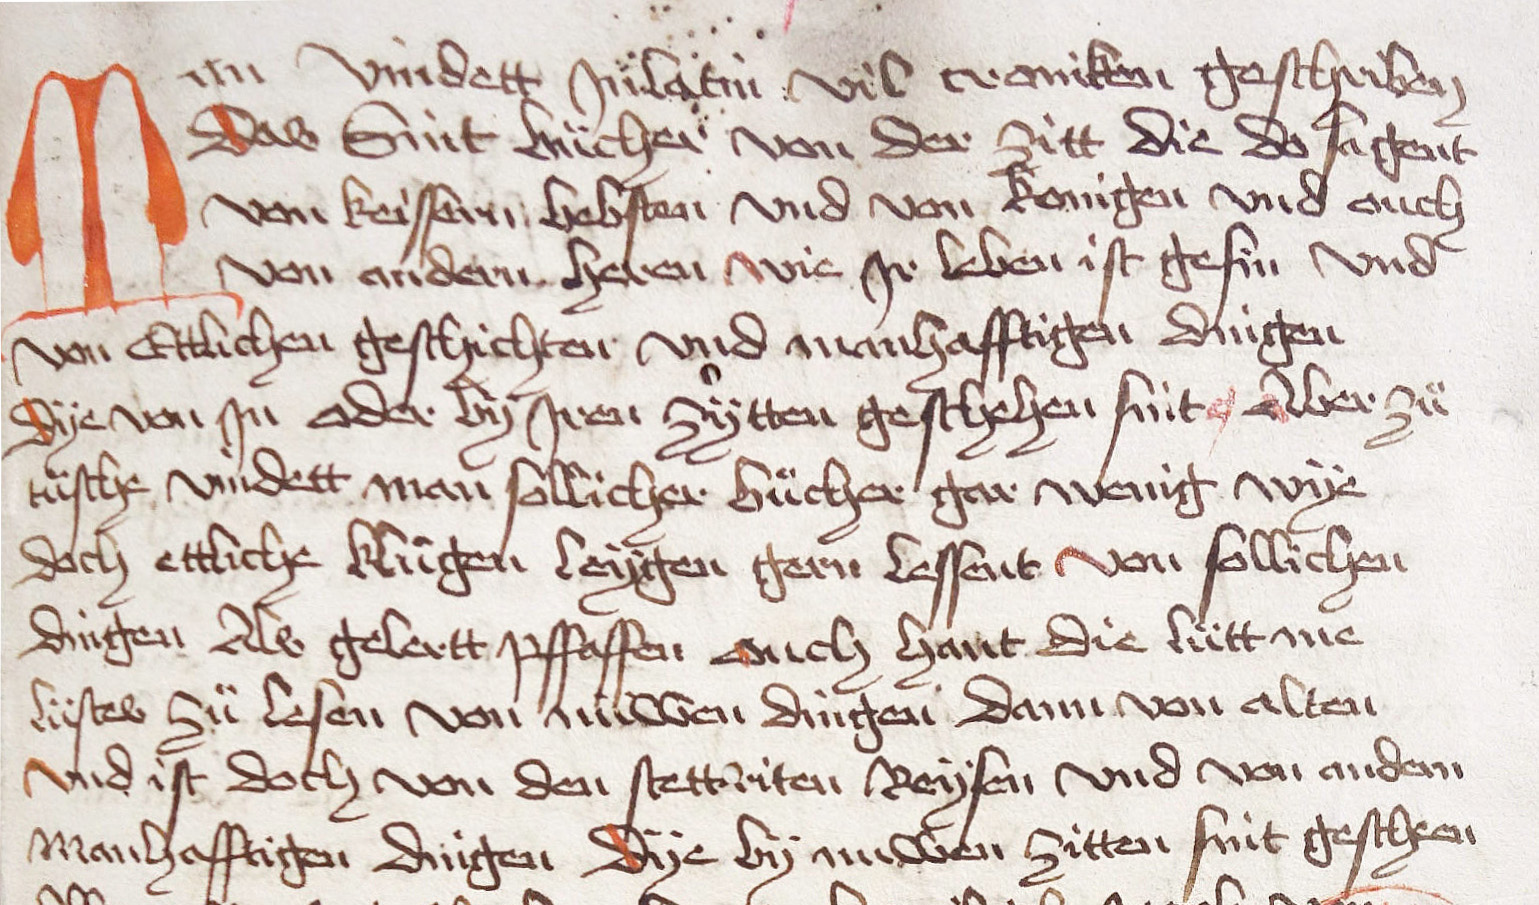 Man vindett Jn latin vil croniken geschriben
Das Sint bücher von der zitt die do sagent
von keissern bebsten vnd von konigen vnd ouch
von andern heren wie Jr leben ist gesin vnd
von Ettlichen geschichten vnd manhafftigen dingen
Dije von Jn oder bij Jren zÿtten geschehen sint Aber zů
tüsche vindett man sollicher bücher gar wenig wije
doch ettliche klůgen leijgen gern lessent von sollichen
dingen Als gelertt pffaffen ouch hant die lütt me
lüstes zů lesen von nuwen dingen dann von alten
vnd ist doch von den stettriten Reijsen vnd von andern
Manhafftigen dingen Dije bij nuwen zitten sint gescheen